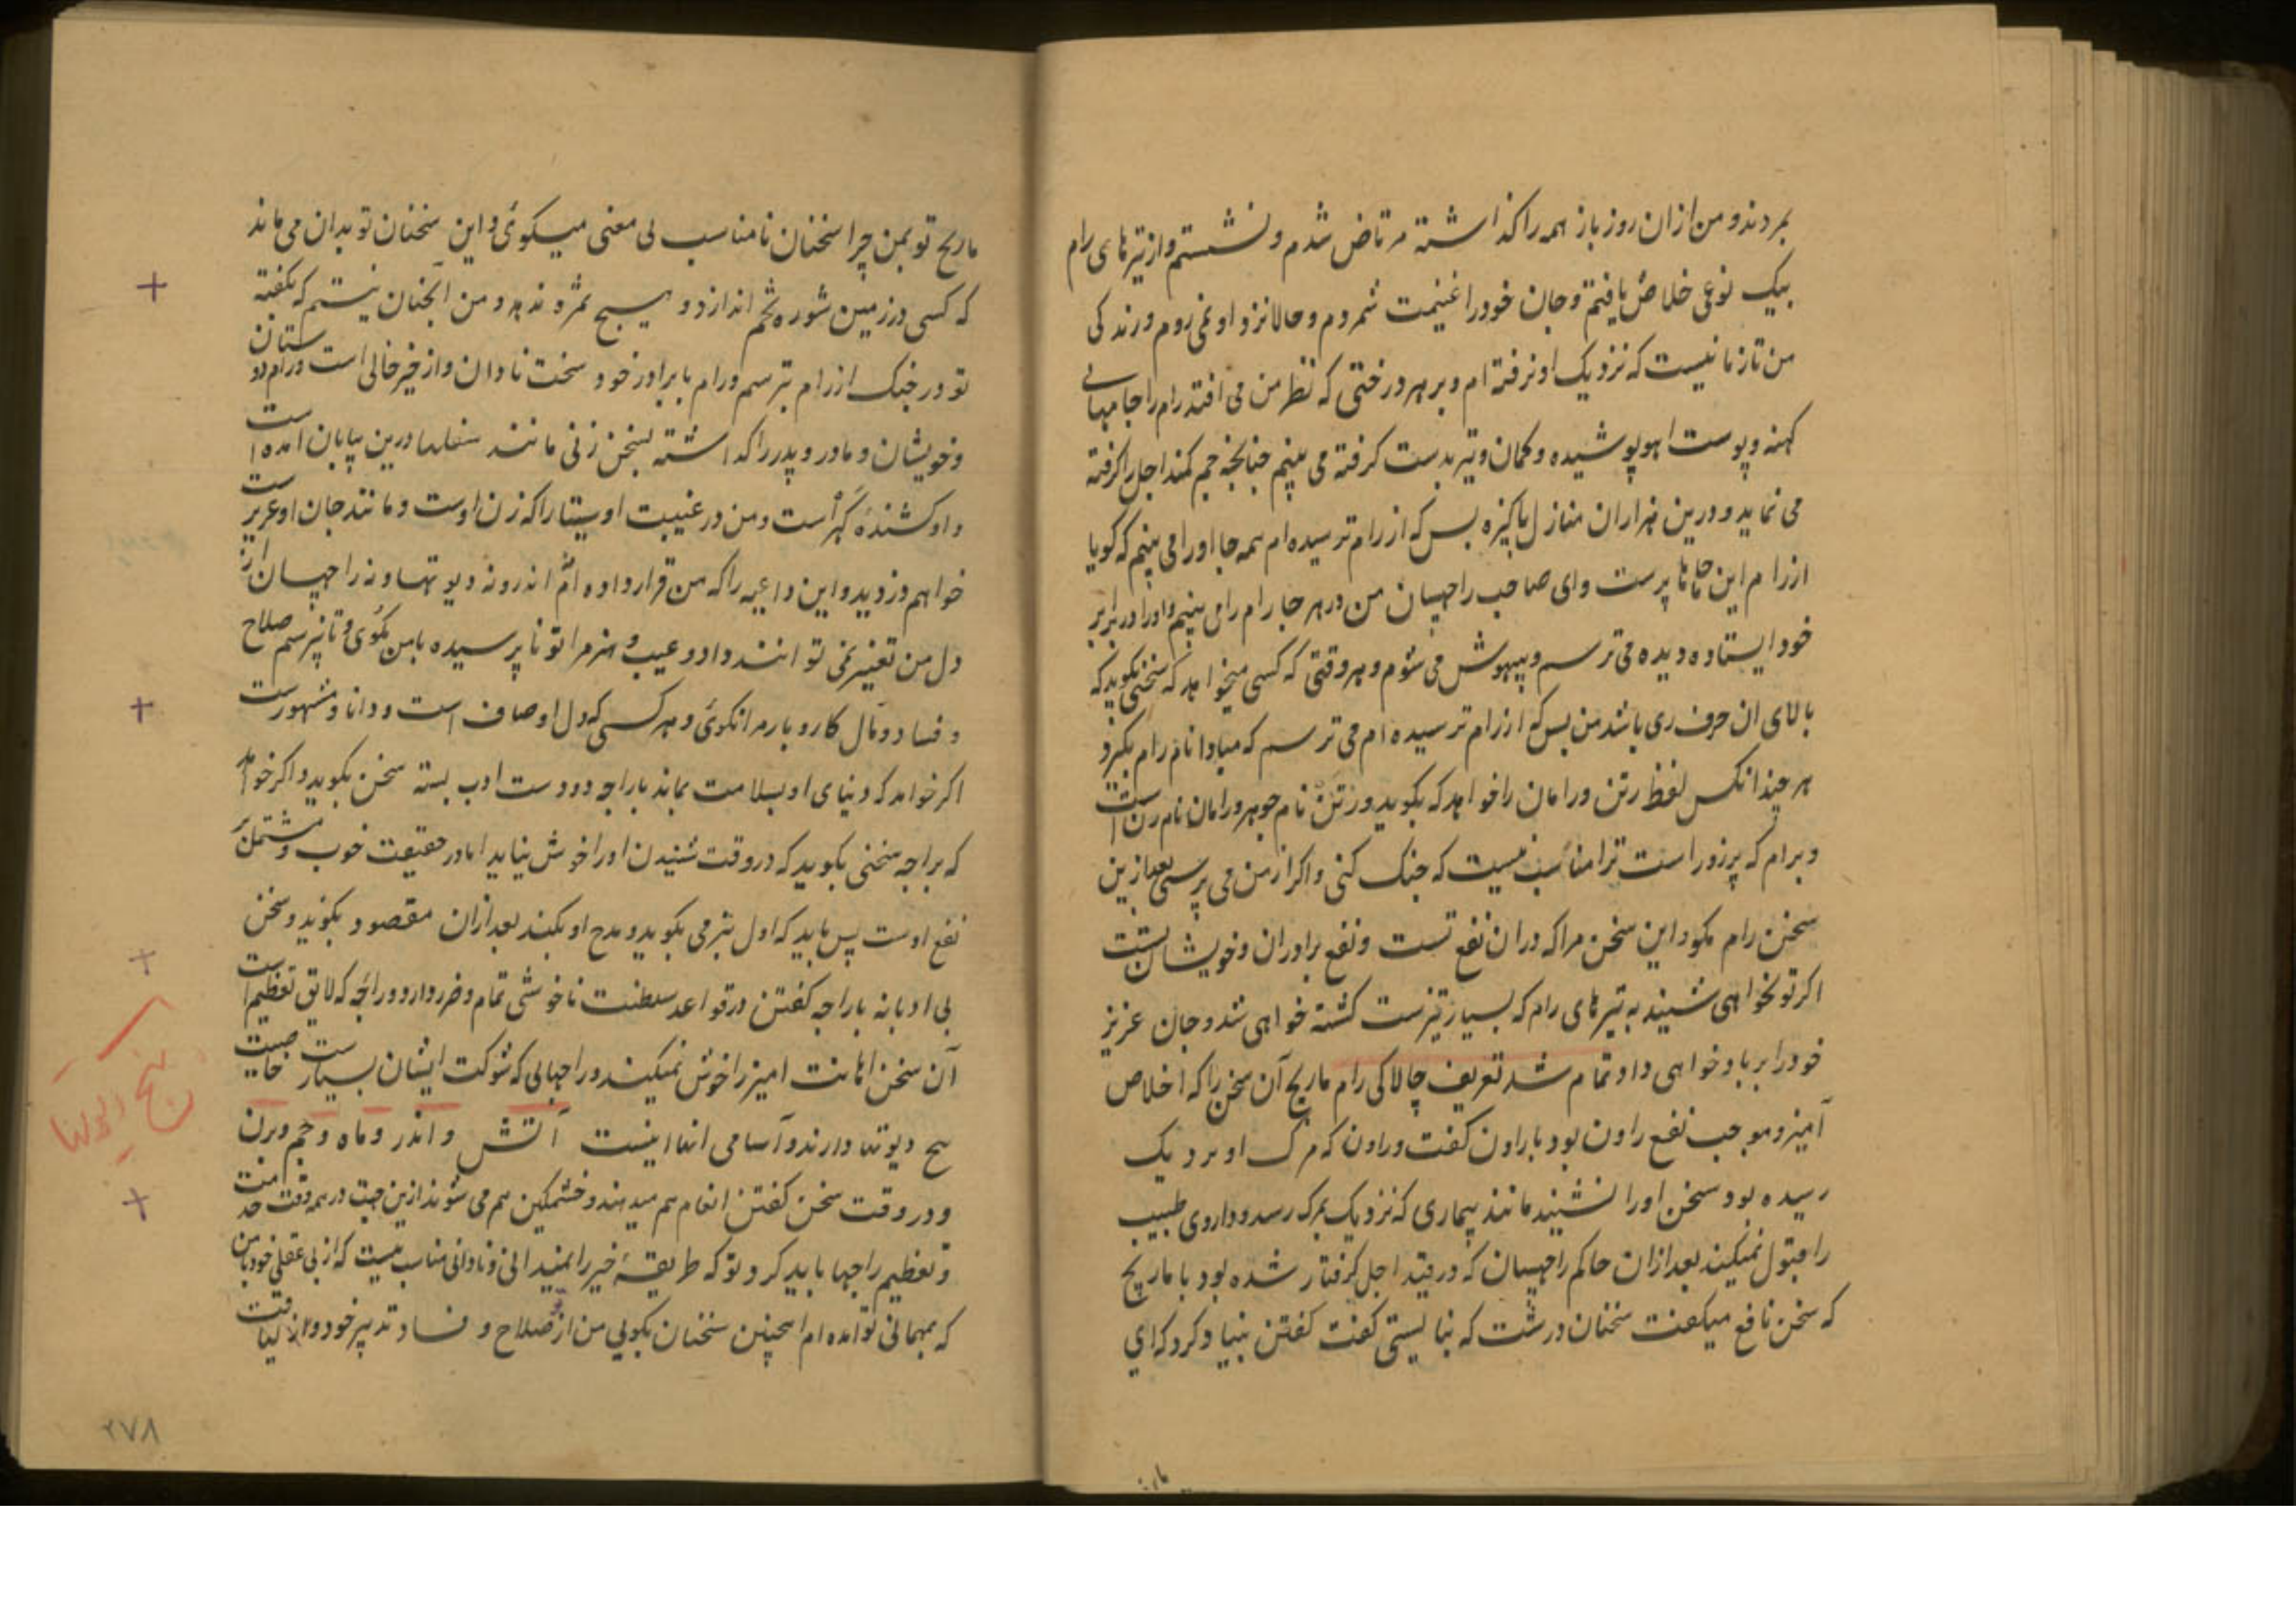 بمردند و من ازان روز باز همه را گذاشته مرتاض شدم و نشستم و از تیرهای رام
بیک نوعی خلاص یافتم و جان خود را غنیمت شمردم و حالا نزد او نمی روم و رندکی
من تازمانیست که نزدیک او نرفته ام و بر هر درختی که نظر من می افتد رام را جامهای
کهنه و پوست اهو پوشیده و کمان و تیر بدست کرفته می بینم چنانچه جم کمند اجل را کرفته
می نماید و درین هزاران منازل پاکیزه بس که از رام ترسیده ام همه جا او را می بینم که کویا
از رام این پرست و ای صاحب راچهسان من در هر جا رام را می بینم و او را در برابر
خود ایستاده دیده می ترسم و بیهوش می شوم و هر وقتی که کسی میخواهد که سخنی بکوید که
بالای ان حرف ری باشد من بس که از رام ترسیده ام می ترسم که مبادا نام رام بکیرد
هر چند انکس لفظ رتن و رامان را خواهد که بکوید و رتن نام جوهر و رامان نام زن است
و برام که پرزور است ترا مناسب نیست که جنک کنی و اکر از من می پرسی بعد ازین
سخن رام مکو و این سخن مرا که دران نفع تست و نفع برادران و خویشان تست
اکر تو نخواهی شنید به تیرهای رام که بسیار تیزست کشته خواهی شد و جان عزیز
خود را بر باد خواهی داد و تمام شد تعریف چالاکی رام ماریچ آن سخن را که اخلاص
آمیز و موجب نفع راون بود با راون کفت و راون که مرک او نزدیک
رسیده بود سخن او را نشنید مانند بیماری که نزدیک بمرک رسد و داروی طبیب
را قبول نمیکند بعد ازان حاکم راچهسان که در قید اجل کرفتار شده بود با ماریچ
که سخن نافع میکفت سخنان درشت که نبایستی کفت کفتن بنیاد کرد که ای
ماریچ تو بمن چرا سخنان نامناسب بی معنی میکوئی و این سخنان تو بدان می ماند
که کسی در زمین شوره تخم اندازد و هیچ ثمره ندهد و من آنچنان نیستم که بکفته
تو در جنک از رام بترسم و رام با برادر خود سخت نادان و از خیر خالی است و رام دوستان
و خویشان و مادر و پدر را گذاشته بسخن زنی مانند سفلها درین بیابان امده است
و او کشنده کهر است و من در غیبت او سیتا را که زن اوست و مانند جان او عزیزست
خواهم دزدید و این داعیه را که من قرار داده ام اندر و نه دیوتها و نه راچهسان از
دل من تغییر نمی توانند داد و عیب و هنر مرا تو ناپرسیده با من بکوی و تا نپرسم صلاح
و فساد و مال کار و بار مرا نکوئی و هر کسی که دل او صاف است و دانا و مشهورست
اکر خواهد که دنیای او بسلامت بماند با راجه دو دست ادب بسته سخن بکوید و اکر خواهد
که براجه سخنی بکوید که در وقت شنیدن او را خوش نیاید اما در حقیقت خوب و مشتمل بر
نفع اوست پس باید که اول بنرمی بکوید و مدح او بکند بعد ازان مقصود بکوید و سخن
بی ادبانه با راجه کفتن در قواعد سلطنت ناخوشی تمام و ضرر دارد و راجه که لایق تعظیم است
آن سخن اهانت امیز را خوش نمیکیند و راجهایی که شوکت ایشان بسیارست خاصیت
پنج دیوتها دارند و آسامی انها اینست آتش و اندر و ماه و جم و برن
و در وقت سخن کفتن انعام هم میدهند و خشمکین هم می شوند ازین جهت در همه وقت خدمت
و تعظیم راجها باید کرد و تو که طریقهٔ خیر را نمیدانی و نادانی مناسب نیست که از بی عقلی خود با من
که بمهمانی تو امده ام اینچنین سخنان بکویی من از تو صلاح و فساد تدبیر خود و لیاقت
۲۷۸